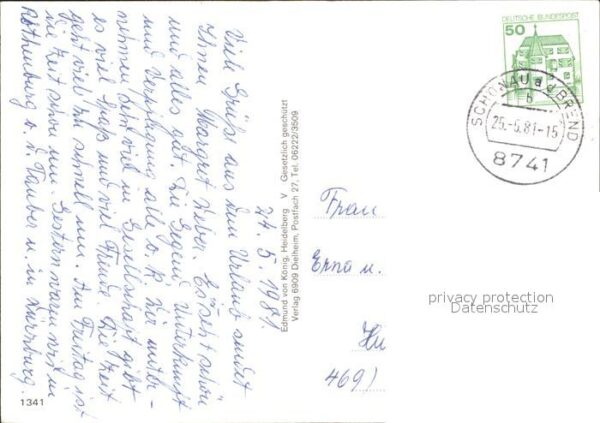 24.5.1981.
Viele Grüße aus dem Urlaub sendet
Ihnen Margret Heiser. Es ist schön
und alles gut. Die Gegend, Unterkunft
und Verpflegung alle o. k. Wir unter-
nehmen sehr viel in Gesellschaft gibt
es viel Spaß und viel Freude. Die Zeit
geht viel zu schnell um. Am Freitag ist
die Zeit schon um. Gestern waren wir in
Rothenburg o. d. Tauber u. in Würzburg.
1341
Edmund von König, Heidelberg V Gesetzlich geschützt
Verlag 6909 Dielheim, Postfach 27, Tel. 06222/3509
DEUTSCHE BUNDESPOST
50
SCHÖNAU a d BREND
b
25.-5.81-15
8741
Frau
Erna u.
469
privacy protection
Datenschutz